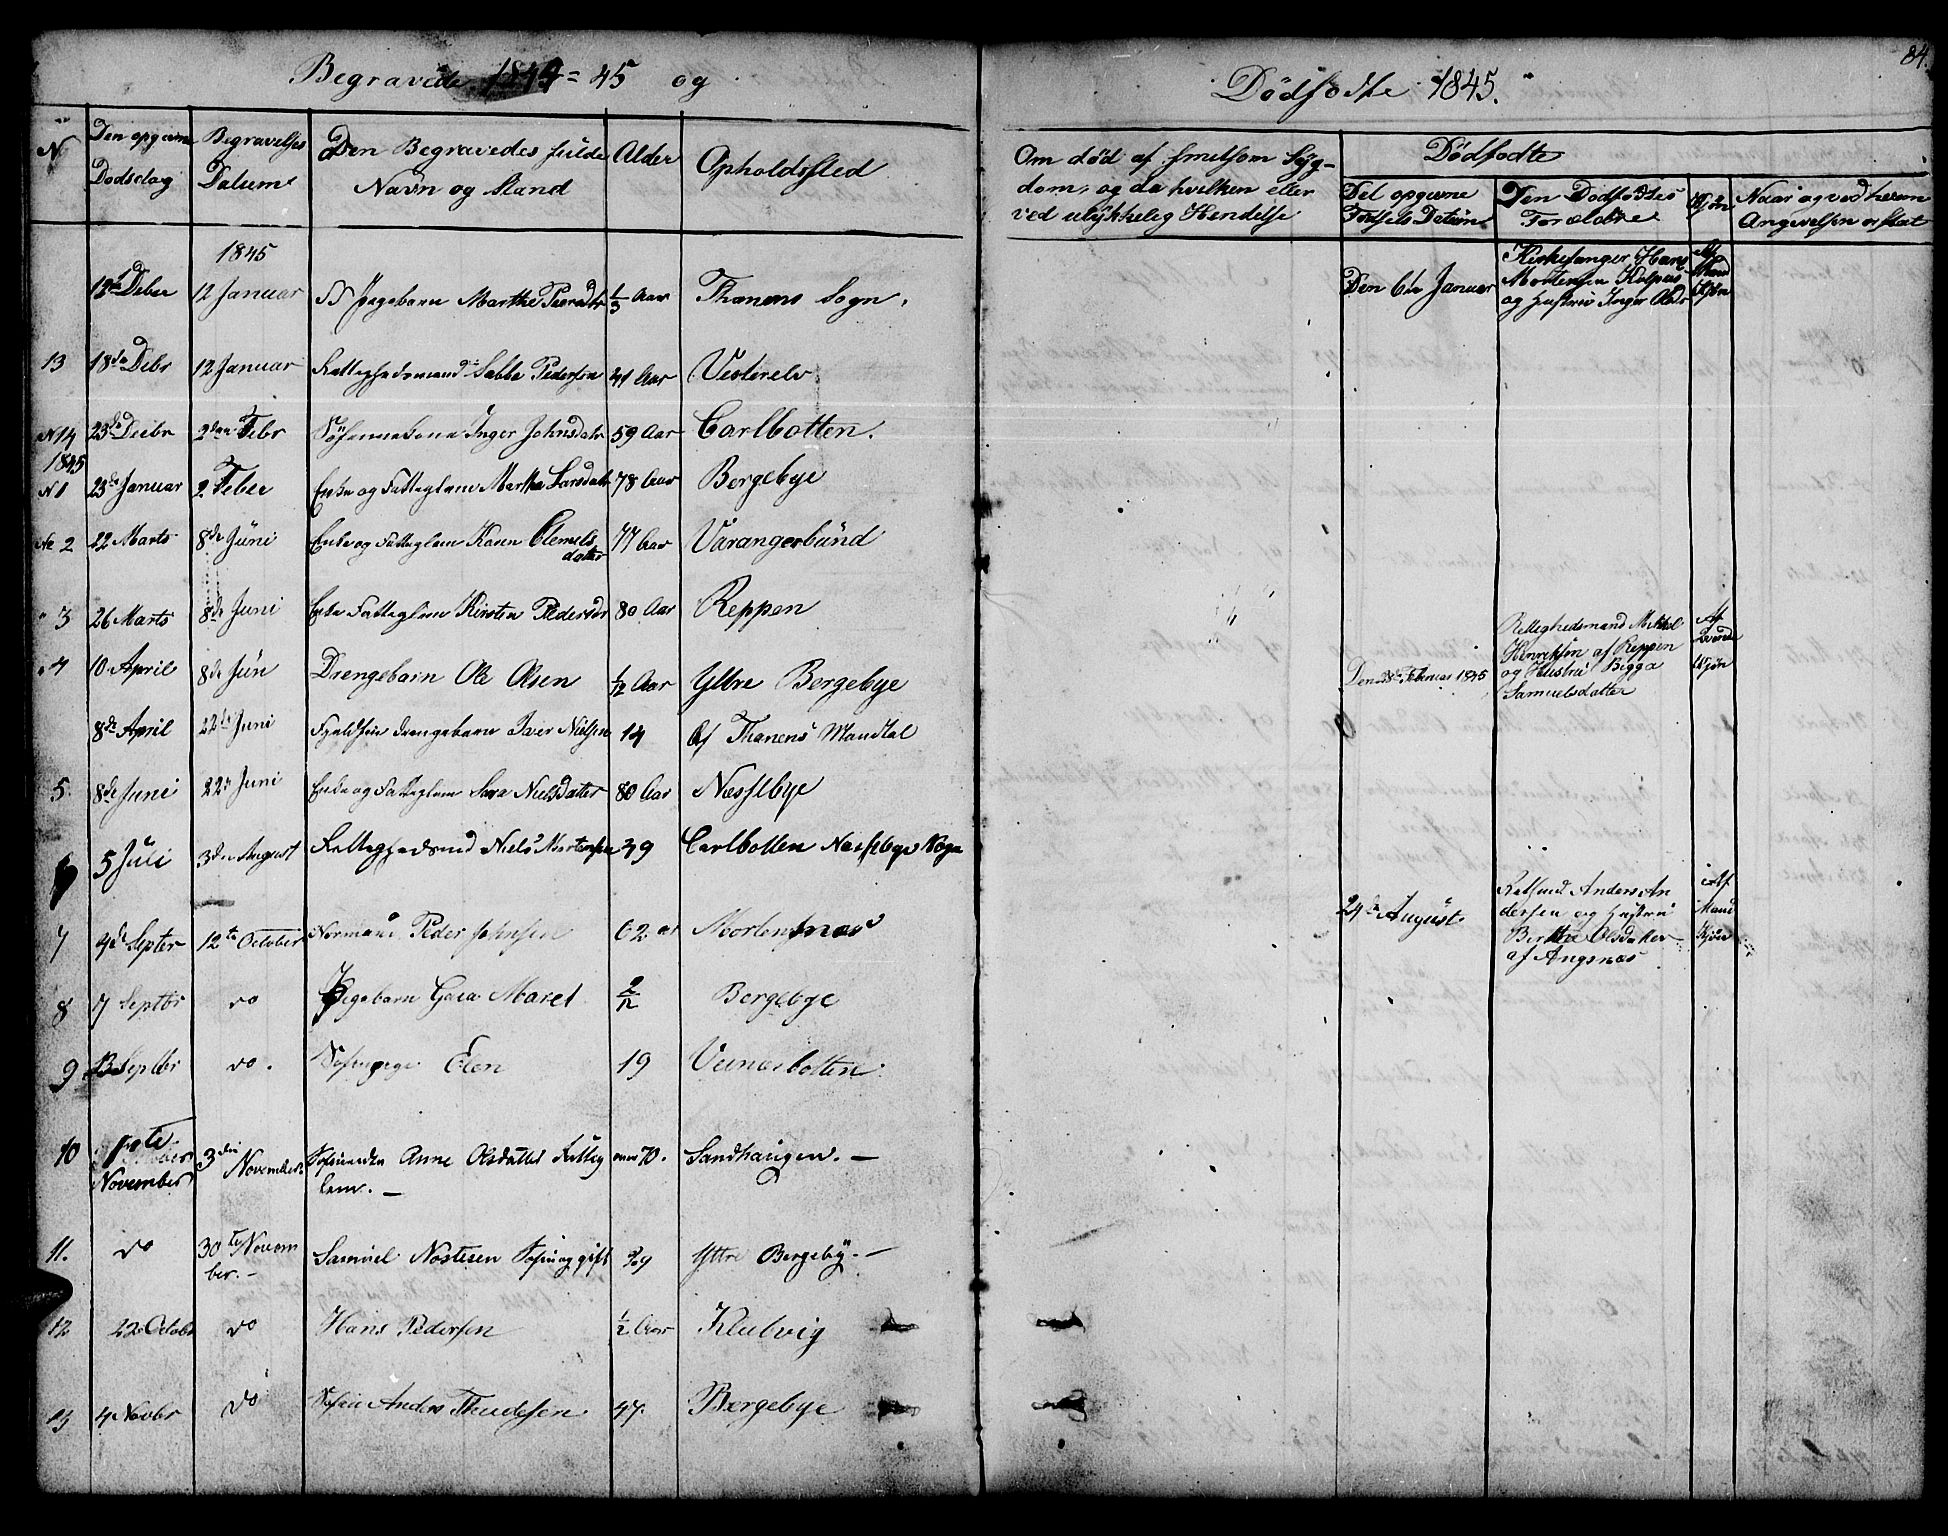 Begravede 1844 = 45 og
Dödfödte 1845.
84.
N
Den opgivne
Dödsdag
Begravelses
Datum
Den Begravedes fulde
Navn og Stand
Alder
Opholdssted
Om död af smitsom Syg-
dom, og da hvilken eller
ved ulykkelig Hendelse
Dödfödte
Det opgivne
Födsels Datum
Den Dödfödtes
Forældre
Kjön
Naar og ved hvem
Angivelsen er skeet
1845
Deber 12 Januar Pigebarn Marthe 1/3 Aar Thanens Sogn.
Den 6te Januar
Kirkesanger Hans
Mortensen
og Hustrue Inger
Af
Mand
Kjön
13 18de Debr 12 Januar Sabba Pedersen 41 Aar Vesterelv
N 14 23de Debr 2den Febr Inger Johnsdatr 59 Aar Carlbotten.
1845
N 1 23de Januar 2 Feber Enke og Fattiglem Marthe Larsdatr 78 Aar Bergebye
No 2 22 Marts 8de Juni Enke og Fattiglem Karen Clemets
datter 77 Aar Varangerbund
" 3 26 Marts 8de Juni Enke Fattiglem Kirsten Pedersdr 80 Aar Reppen
" 4 10 April 8de Jun Drengebarn Ole Olsen 1/12 Aar Yttre Bergebye
Den Februar 1845
Rettighedsmand Mikkel
Henriksen af Reppen
og Hustru Bigga
Samuelsdatter
Af
Kjön
8de April 22de Juni Drengebarn Iver Nielsen 14 Af Thanens Mandtal
5 8de Juni 22de Juni Enke og Fattiglem Sara Nielsdatter 80 Aar Nessebye
6 5 Juli 3die August Niels Mortensen 39 Carlbotten Nessebye Sogn
24de August
Anders An
dersen og Hustru
Berthe Olsdatter
af Angsnæs
Af
Mand
Kjön
7 9de Septer 12te October Normand Peder Johnsen 62 ar Mortensnæs
8 7 Septbr do Pigebarn Maret 2/12 Bergebye
9 13 Septbr do. Elen 19
10
November 3die
November. Anne Olsdatter Fattig
lem. — 70. Sandhaugen. —
11. do 30te Novem
ber. — Samuel gift Yttre Bergeby. —
12 22 Octobr do Hans Pedersen 1/2 Aar Klubvig
13 4 Novbr do Anders 47. Bergebye